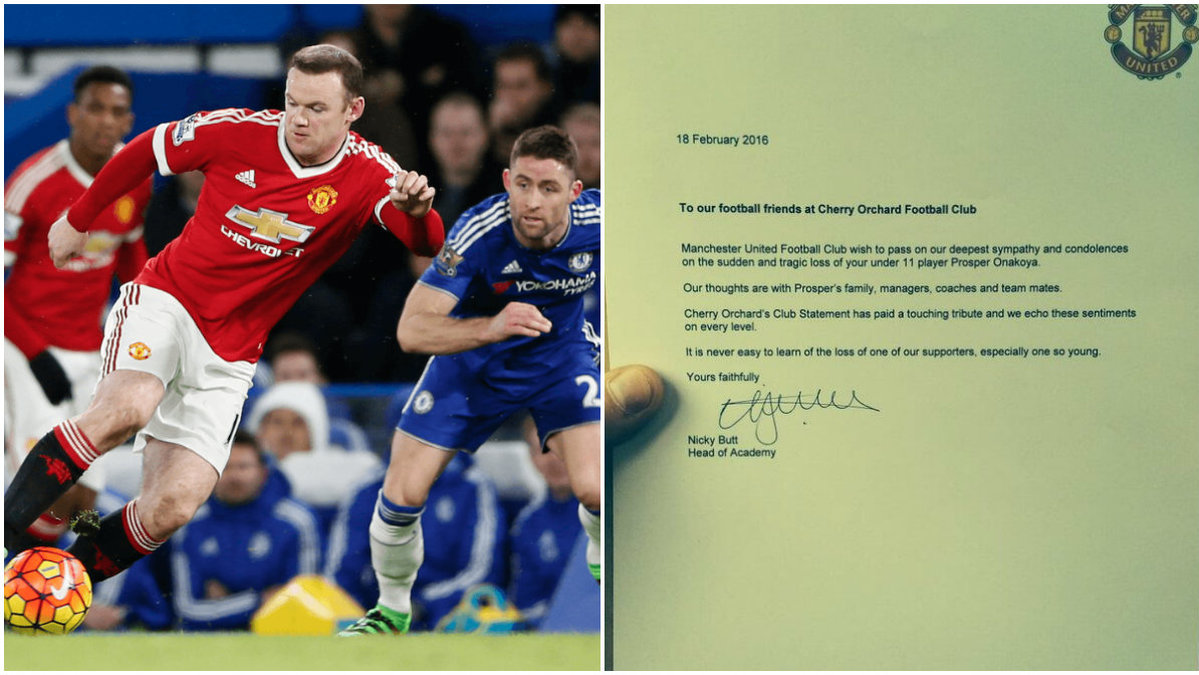 CHEVROLET
YOKOHAMA
TYRES
2
MANCHESTER
UNITED
18 February 2016
To our football friends at Cherry Orchard Football Club
Manchester United Football Club wish to pass on our deepest sympathy and condolences
on the sudden and tragic loss of your under 11 player Prosper Onakoya.
Our thoughts are with Prosper's family, managers, coaches and team mates.
Cherry Orchard's Club Statement has paid a touching tribute and we echo these sentiments
on every level.
It is never easy to learn of the loss of one of our supporters, especially one so young.
Yours faithfully
Nicky Butt
Head of Academy